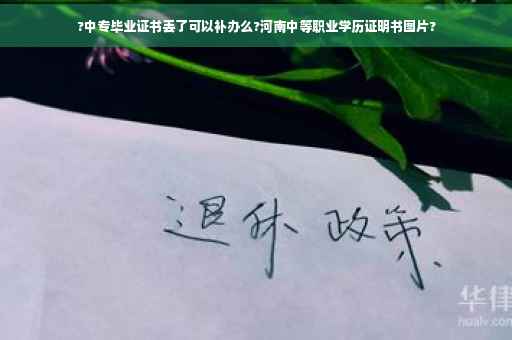 ?中专毕业证书丢了可以补办么?河南中等职业学历证明书图片?
退休 政策
华律
hualv.com